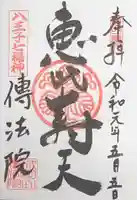 奉拝
令和元年五月五日
恵比寿天
八王子七福神
傳法院